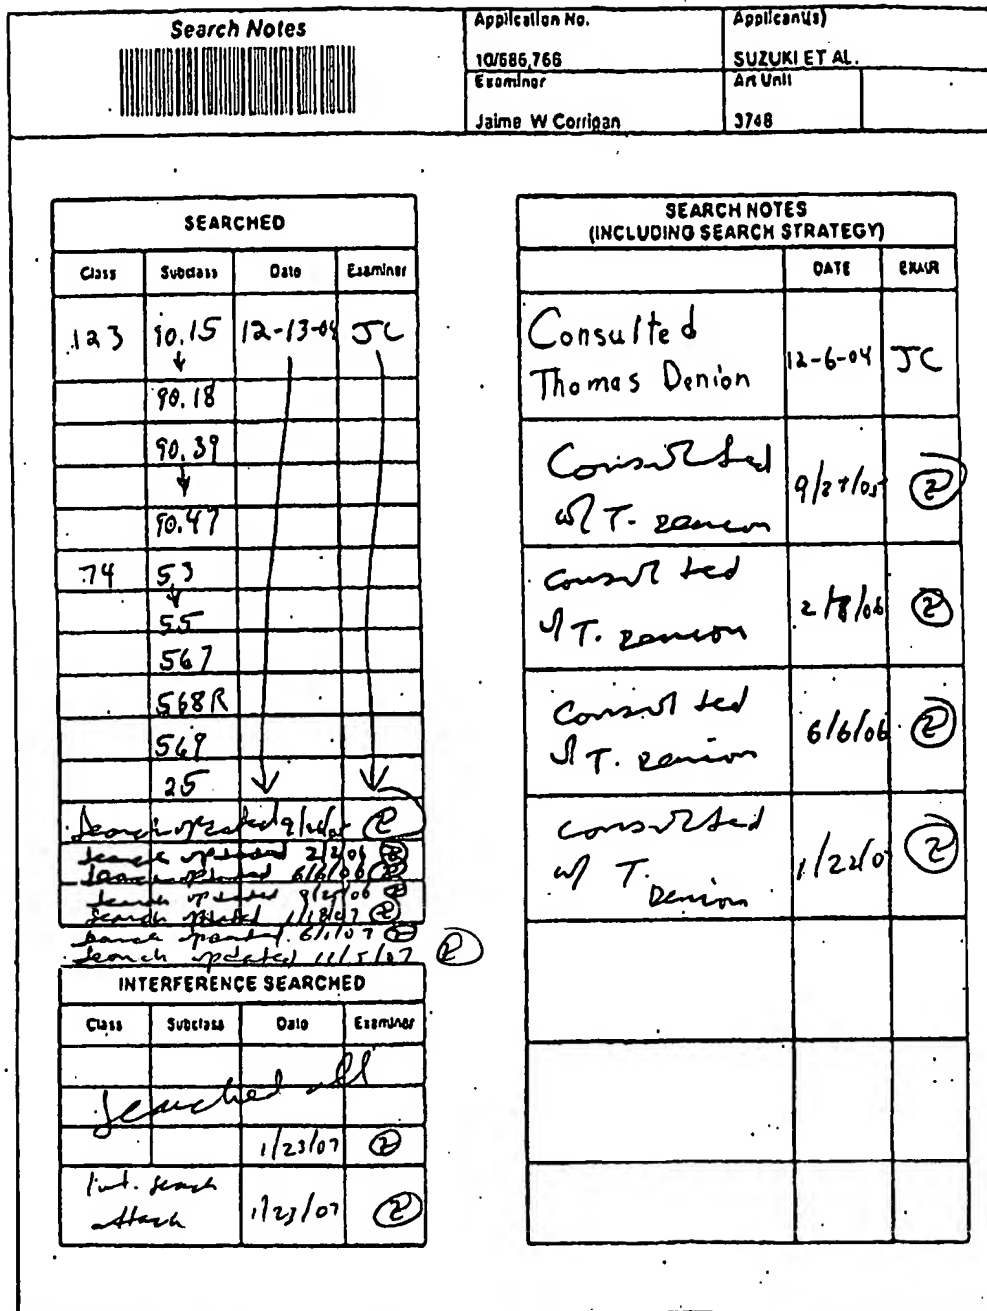 Search Notes
Application No.
10/686,766
Applicant(s)
SUZUKI ET AL.
Examiner
Jaime W Corrigan
Art Unit
3748
SEARCHED
Class Subclass Date Examiner
123 90.15 12-13-04 JC
90.18
90.39
90.47
74 53
55
567
568R
569
25
Search updated
search updated 2/2/06
search updated 6/6/06
search updated 9/25/06
search updated 1/18/07
search updated 6/1/07
search updated 11/5/07
INTERFERENCE SEARCHED
Class Subclass Date Examiner
Searched all
1/23/07
Int. search
attach 1/23/07
SEARCH NOTES
(INCLUDING SEARCH STRATEGY)
DATE EXMR
Consulted
Thomas Denion 12-6-04 JC
Consulted
w/ T. Denion 9/27/05
Consulted
w/ T. Denion 2/8/06
Consulted
w/ T. Denion 6/6/06
Consulted
w/ T.
Denion 1/22/0